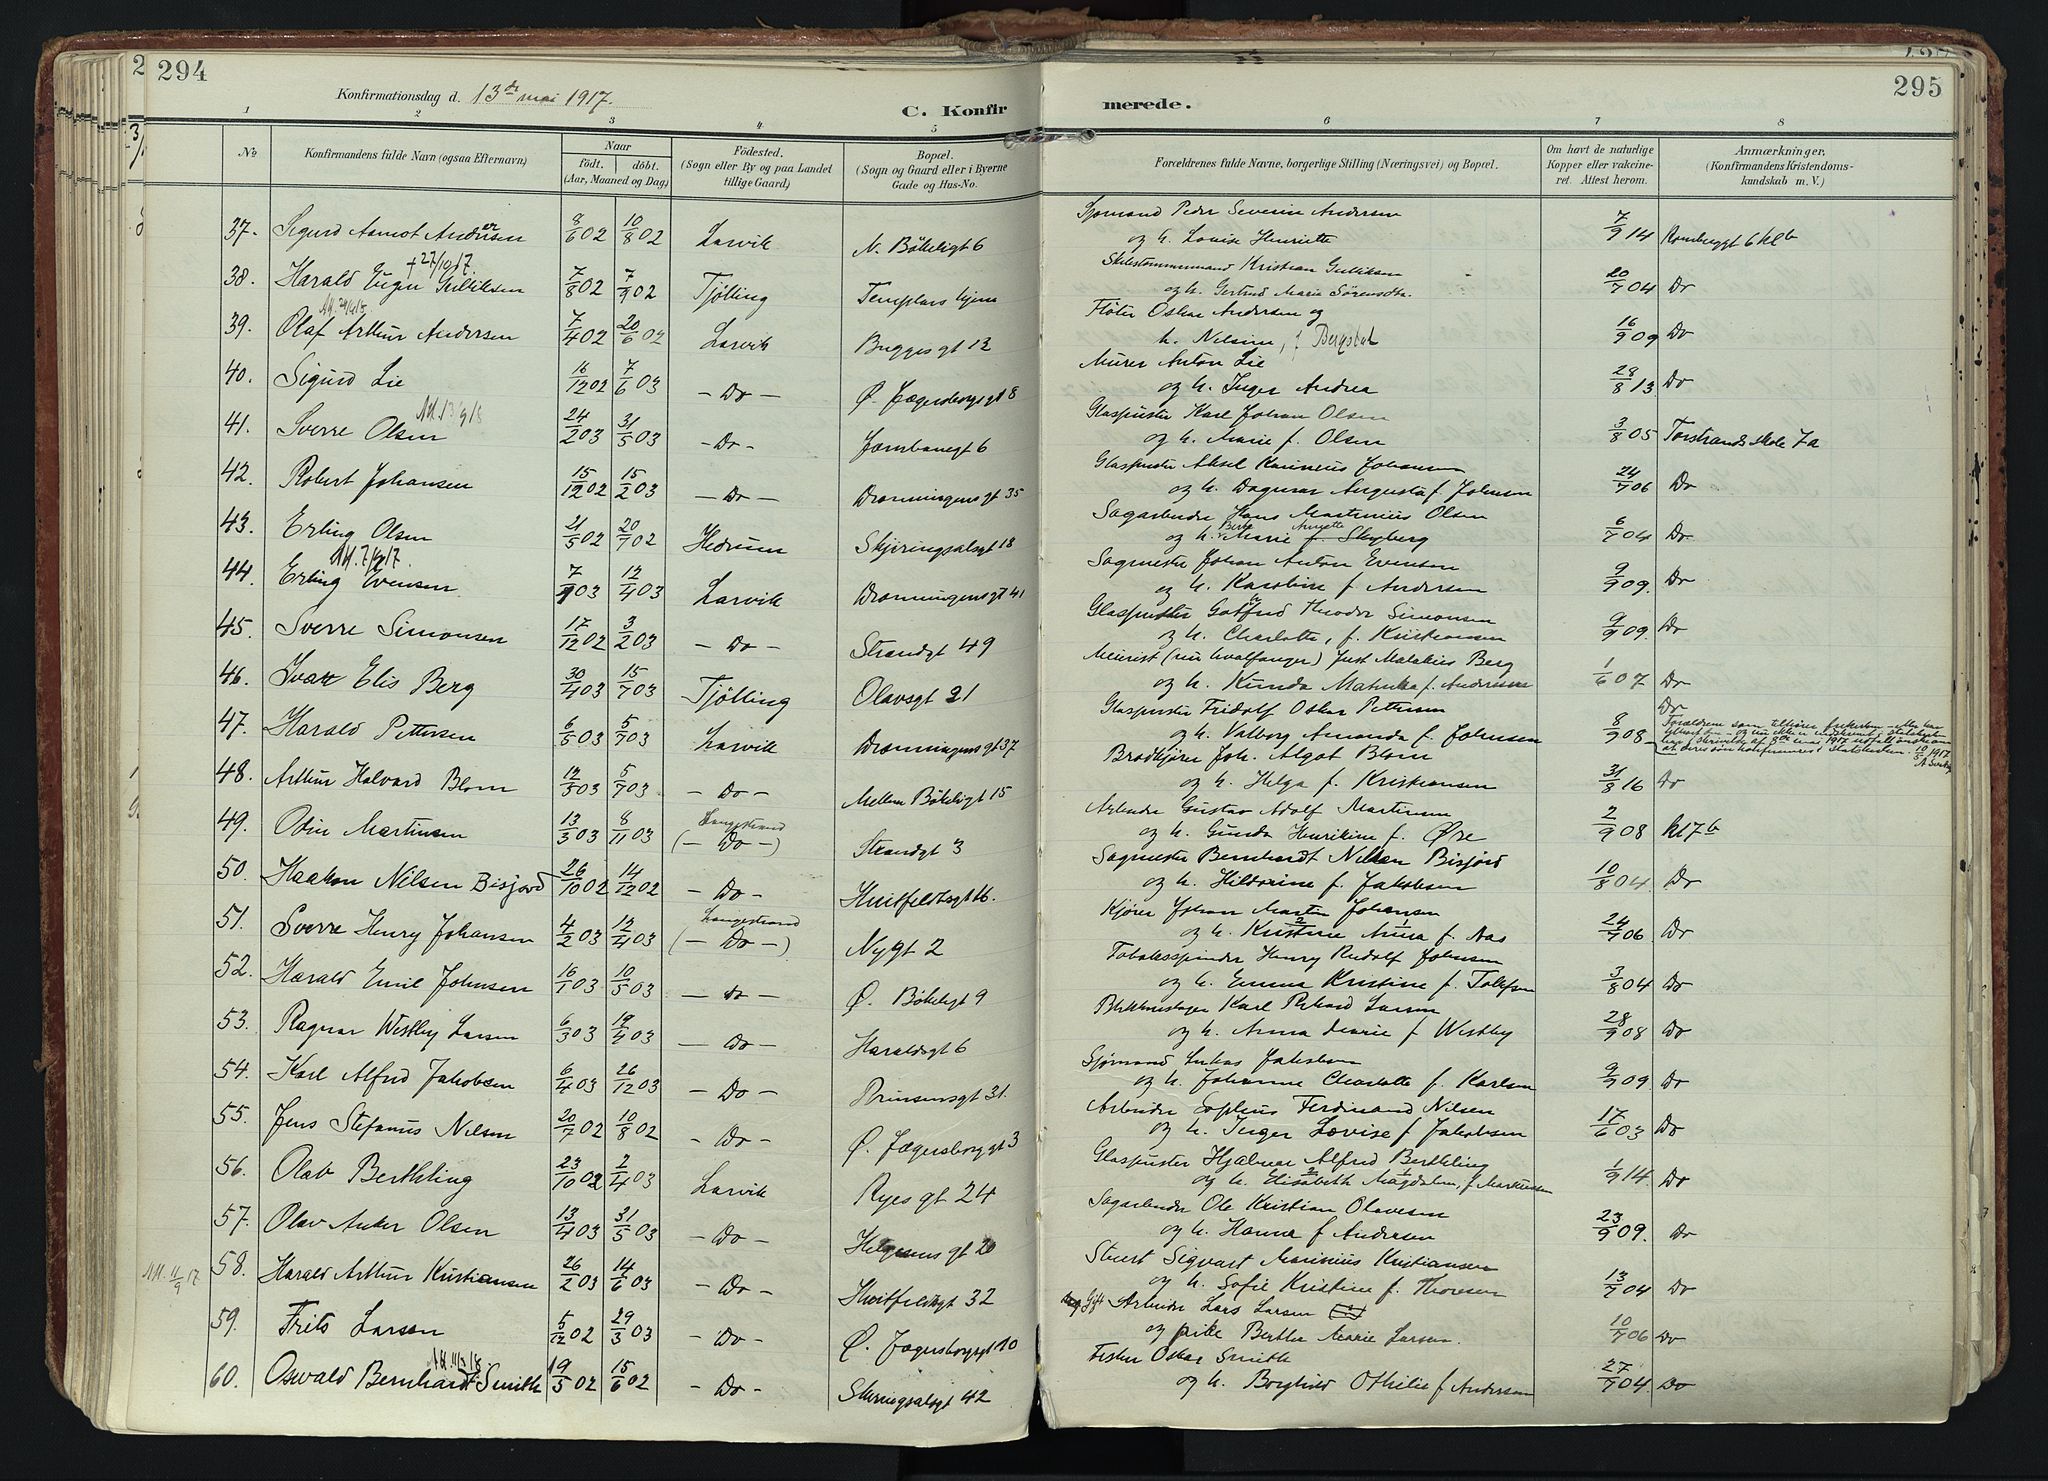 294
Konfirmationsdag d. 13de mai 1917.
C. Konfir
1 2 3 4 5
No
Konfirmandens fulde Navn (ogsaa Efternavn)
Naar
födt. döbt.
(Aar, Maaned og Dag)
Födested.
(Sogn eller By og paa Landet
tillige Gaard)
Bopæl.
(Sogn og Gaard eller i Byerne
Gade og Hus-No.
37. Sigurd Aamot Andersen 8/6 02 10/8 02 Larvik N. Bökeligt 6
† 27/10 17.
38. Harald Eugen Gulliksen 7/8 02 7/9 02 Tjölling Templars hjem
39. Olaf Arthur Andersen 7/4 02 20/6 02 Larvik Bugges gt 12
40. Sigurd Lie 16/12 02 7/6 03 - Do - Ø. Jægersborgsgt 8
41. Sverre Olsen 24/2 03 31/5 03 - Do - Jernbanegt 6
42. Robert Johansen 15/12 02 15/2 03 - Do - Dronningensgt 35
43. Erling Olsen 21/5 02 20/7 02 Hedrum Skjiringsalsgt 18
44. Erling Evensen 12/4 03 Larvik Dronningensgt 41
45. Sverre Simonsen 17/12 02 3/2 03 - Do - Strandgt 49
46. Ivar Elis Berg 30/4 03 15/7 03 Tjölling Olavsgt 21
47. Harald Pettersen 6/5 03 5/7 03 Larvik Dronningensgt 37
48. Arthur Halvard Blom 12/5 03 5/7 03 - Do - Mellem Bökeligt 15
49. Odin Martinsen 13/3 03 8/11 03 Langestrand (- Do -) Strandgt 3
50. Haakon Nilsen Bisjord 26/10 02 14/12 02 - Do - Huitfeldtsgt 16.
51. Sverre Henry Johansen 4/2 03 12/4 03 Langestrand (- Do -) Nygt 2
52. Harald Emil Johnsen 16/1 03 10/5 03 - Do - Ø. Bökeligt 9
53. Ragnar Westby Larsen 6/3 03 - Do - Haraldsgt 6
54. Karl Alfred Jakobsen 6/4 03 26/12 03 - Do - Prinsensgt 31.
55. Jens Stefanus Nilsen 20/7 02 10/8 02 - Do - Ø. Jægersborggt 3
56. Olav Berthling 23/10 02 2/4 03 Larvik Ryes gt 24
57. Olav Anker Olsen 13/4 03 31/5 03 - Do - Helgesens gt 20
58. Harald Arthur Kristiansen 26/2 03 14/6 03 - Do - Huitfeldtsgt 32
59. Frits Larsen 5/12 02 29/3 03 - Do - Ø. Jægersborgsgt 10
60. Oswald Bernhardt Smith 19/5 02 15/6 02 - Do - Skiringsalsgt 42
295
merede.
6 7 8
Forældrenes fulde Navne, borgerlige Stilling (Næringsvei) og Bopæl.
Om havt de naturlige
Kopper eller vakcine-
ret. Attest herom.
Anmærkninger.
(Konfirmandens Kristendoms-
kundskab m. V.)
Sjømand Peder Severin Andersen
og h. Lovise Henriette 7/9 14
Kristian Gulliksen
og h. Gertrud Marie Sørensdtr. 20/7 04 Do
Fløter Oskar Andersen og
h. Nilsine, f Bergsdal 16/9 09 Do
Murer Anton Lie
og h. Inger Andrea 28/8 13. Do
Glaspuster Karl Johan Olsen
og h. Marie f. Olsen 3/8 05 Torstrands skole 7a
Glaspuster Aksel Karinius Johansen
og h. Dagmar Augusta f. Johnsen 24/7 06 Do
Sagarbeider Hans Martinius Olsen
og h. Marie f. Skyberg 6/7 04 Do
Sagmester Johan Anton Evensen
og h. Karoline f Andersen 9/9 09. Do
Glaspuster Gotfred Theodor Simonsen
og h. Charlotte, f. Kristiansen 9/9 09. Do
Meierist (nu hvalfanger) Just Malakias Berg
og h. Kunda Matilda f. Andersen 1/6 07 Do
Glaspuster Fridolf Oskar Pettersen
og h. Valborg Amanda f. Johnsen 8/9 08 Do
Brødkjører Joh. Algot Blom
og h. Helga f. Kristiansen 31/8 16 Do
Arbeider Gustav Adolf Martinsen
og h. Gunda Henrikine f. Øre 2/9 08 kl 7 b
Sagmester Bernhardt Nilsen Bisjord
og h. Hildorine f. Jakobsen 10/8 04 Do
Kjører Johan Martin Johansen
og h. Kristine Anna f. Aas 24/7 06 Do
Tobaksspinder Henry Rudolf Johnsen
og h. Emma Kristine f. Tollefsen 3/8 04 Do
Blikkenslager Karl Rikard Larsen
og h. Anna Marie f Westby 28/9 08 Do
Sjømand Lukas Jakobsen
og h. Johanne Charlotte f. Karlsen 9/9 09 Do
Arbeider Sophus Ferdinand Nilsen
og h. Inger Lovise f Jakobsen 17/6 03 Do
Glaspuster Hjalmar Alfred Berthling
og h. Elisabeth Magdalene, f Markussen 1/9 14. Do
Sagarbeider Ole Kristian Olavesen
og h. Hanna f Andersen 23/9 09. Do
Stuert Sigvart Marinius Kristiansen
og h. Sofie Kristine f Thoresen 13/7 04 Do
Gift Arbeider Lars Larsen
og pike Berthe Marie Larsen. 10/7 06 Do
Fisker Oskar Smith
og h. Borghild Othilie f Andersen 27/7 04. Do